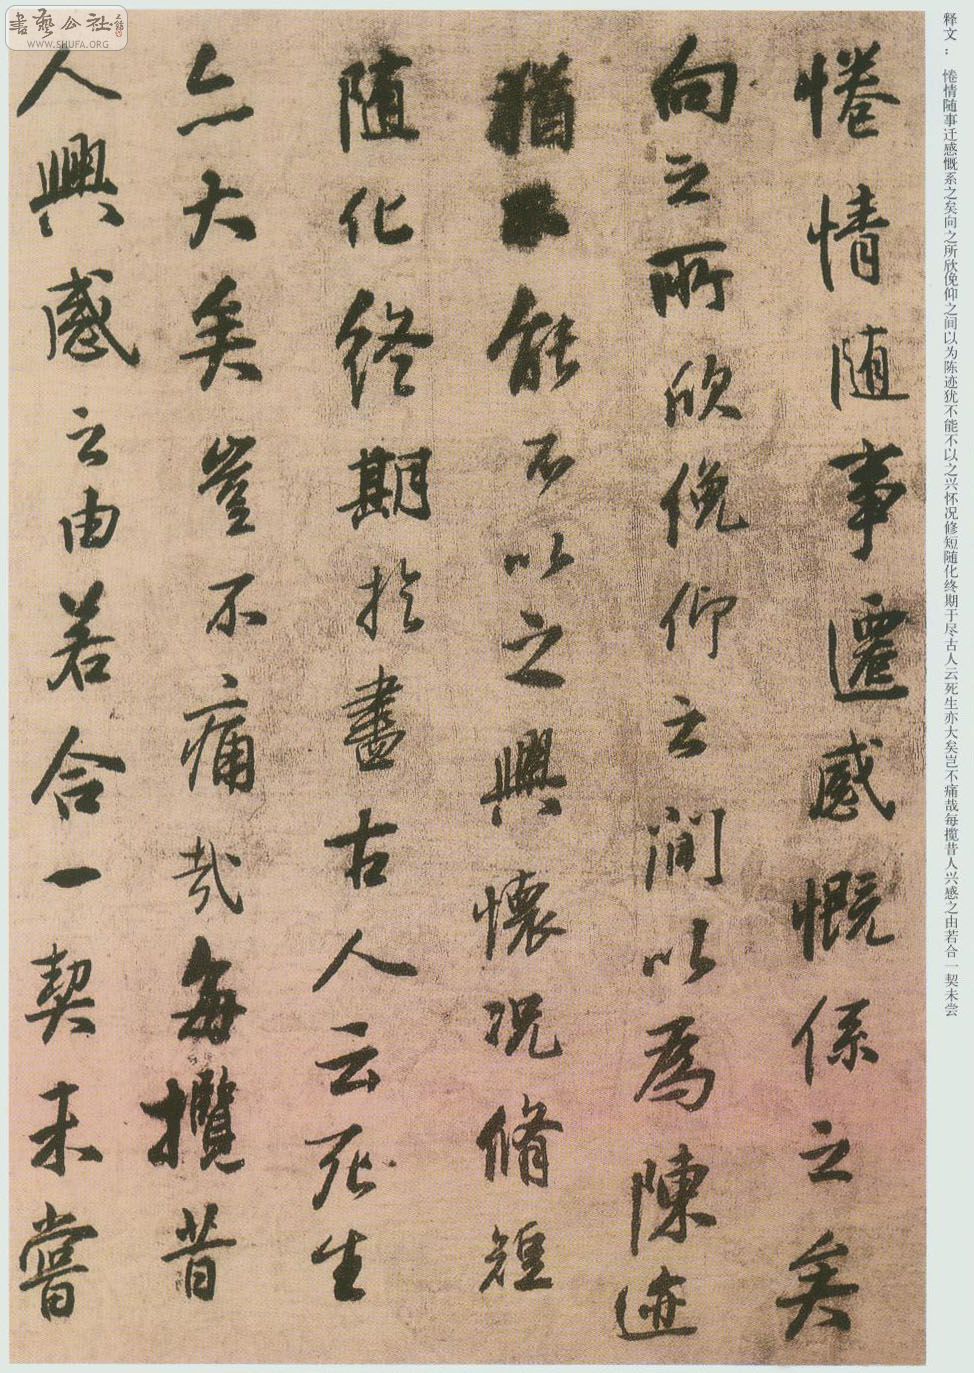 書藝公社
WWW.SHUFA.ORG
释文：倦情随事迁感慨系之矣向之所欣俛仰之间以为陈迹犹不能不以之兴怀况修短随化终期于尽古人云死生亦大矣岂不痛哉每揽昔人兴感之由若合一契未尝
惓情随事遷感慨係之矣
向之所欣俛仰之間以為陳迹
猶不能不以之興懷況脩短
随化終期於盡古人云死生
亦大矣豈不痛哉每攬昔
人興感之由若合一契未嘗